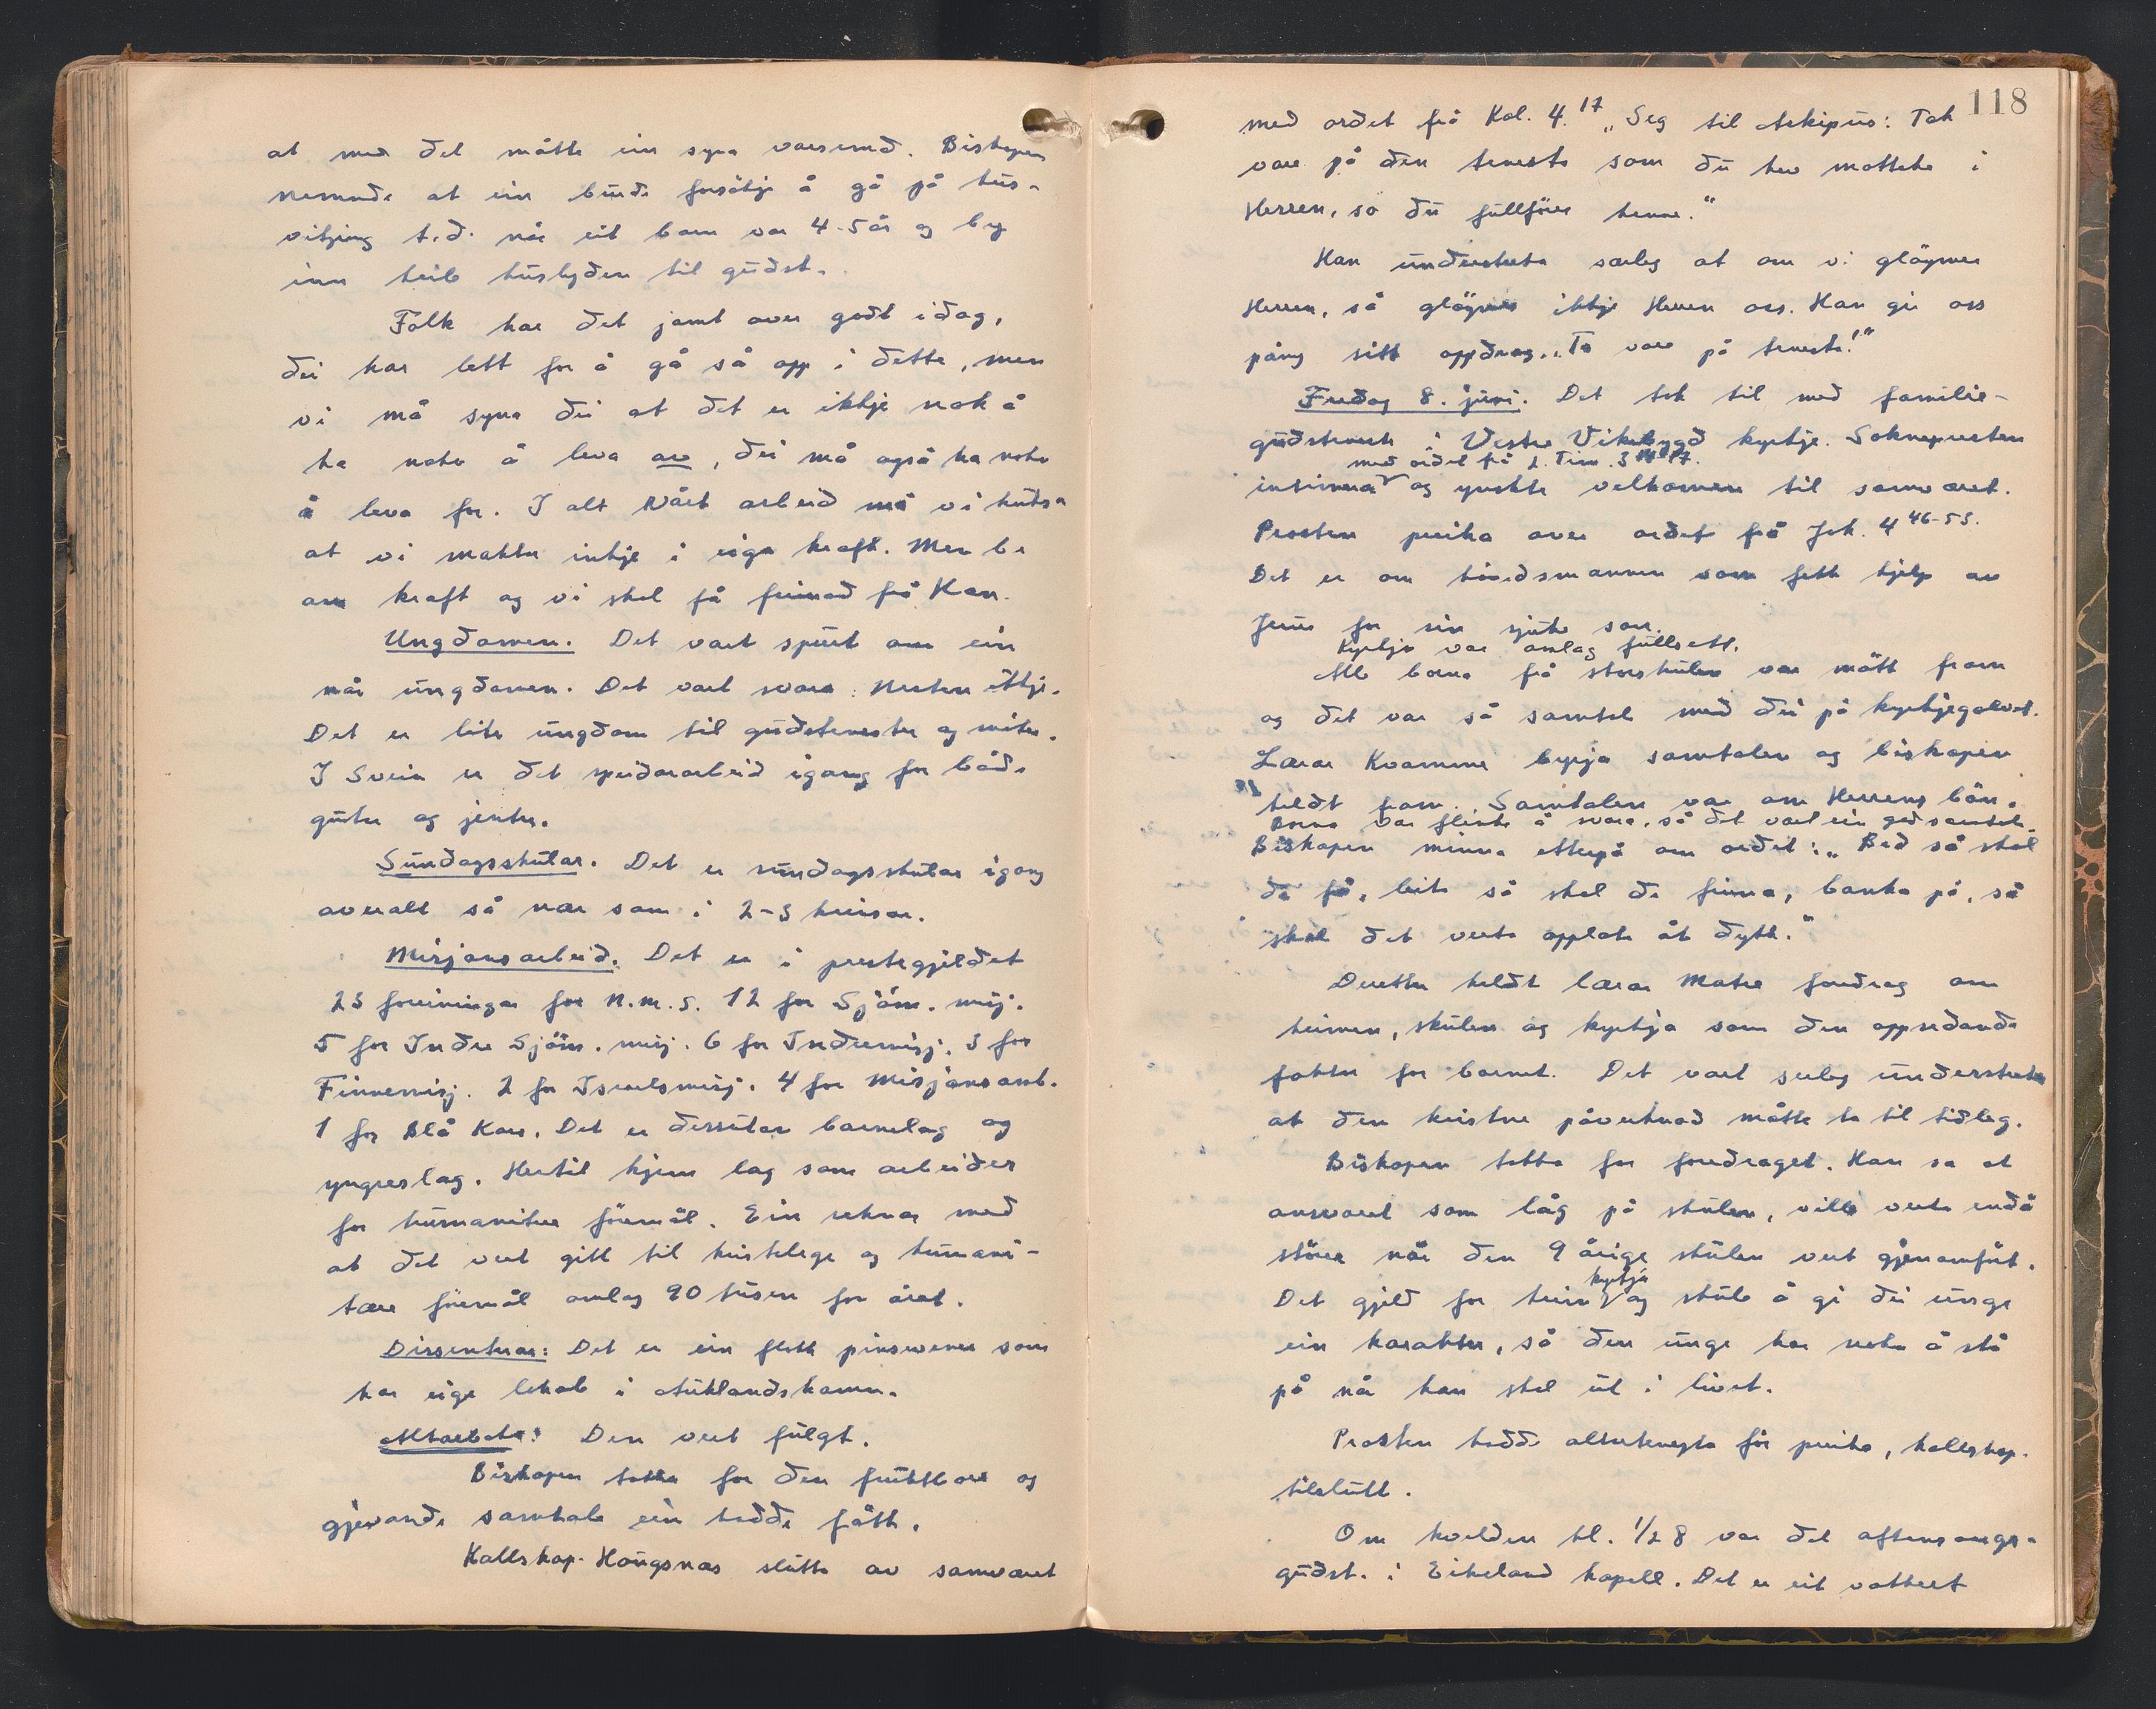 at med det måtte ein syna varsemd. Biskopen
nemnde at ein burde forsökje å gå på hus-
vitjing t.d. når eit barn var 4-5 år og by
inn heile huslyden til gudst.
Folk har det jamt over godt idag,
dei har lett for å gå så opp i dette, men
vi må syna dei at det er ikkje nok å
ha noko å leva av, dei må også ha noko
å leva for. I alt vårt arbeid må vi hugsa
at vi maktar inkje i eiga kraft. Men be
om kraft og vi skal få frimod frå Han.
Ungdomen. Det vart spurt om ein
når ungdomen. Det vart svara: Nesten ikkje.
Det er lite ungdom til gudstenester og möter.
I Sveio er det speidararbeid igang for både
gutar og jenter.
Sundagsskular. Det er sundagsskular igang
overalt så nær som i 2-3 krinsar.
Misjonsarbeid. Det er i prestegjeldet
23 foreiningar for N.M.S. 12 for Sjöm. misj.
5 for Indre Sjöm. misj. 6 for Indremisj. 3 for
Finnemisj. 2 for Israelsmisj. 4 for Misjonsamb.
1 for Blå Kors. Det er dessutan barnelag og
yngreslag. Hertil kjem lag som arbeider
for humanitære föremål. Ein reknar med
at det vert gitt til kristelege og humani-
tære föremål omlag 90 tusen for året.
Dissentarar: Det er ein flokk pinsevener som
har eige lokale i Auklandshamn.
Altarboka: Den vert fulgt.
Biskopen takka for den fruktbare og
gjevande samtale ein hadde fått.
Kallskap. Haugsnæs slutta av samværet
118
med ordet frå Kol. 4.17 „Seg til Arkipus: Tak
vare på den teneste som du hev motteke i
Herren, so du fullförer henne."
Han understreka særleg at om vi glöymer
Herren, så glöymer ikkje Herren oss. Han gir oss
påny sitt oppdrag „Ta vare på tenesta!"
Fredag 8. juni. Det tok til med familie-
gudsteneste i Vestre Vikebygd kyrkje. Soknepresten
med ordet frå 2. Tim. 3 14-17.
intimerar og ynskte velkomen til samværet.
Prosten preika over ordet frå Joh. 4 46-53.
Det er om hirdsmannen som fekk hjelp av
Jesus for sin sjuke son.
Kyrkja var omlag fullsett.
Alle borna frå storskulen var mött fram
og det var så samtal med dei på kyrkjegolvet.
Lærar Kvamme byrja samtalen og biskopen
heldt fram. Samtalen var om Herrens bön.
Borna var flinke å svara, så det vart ein god samtale.
Biskopen minna etterpå om ordet: „Bed så skal
de få, leita så skal de finna, banka på, så
skal det verta opplate åt dykk."
Deretter heldt lærar Matre foredrag om
heimen, skulen og kyrkja som den oppsedande
faktor for barnet. Det vart serleg understreka
at den kristne påverknad måtte ta til tidleg.
Biskopen takka for foredraget. Han sa at
ansvaret som låg på skulen, ville verta endå
större når den 9 årige skulen vert gjenomfört.
kyrkja
Det gjeld for heim og skule å gi dei unge
ein karakter, så den unge har noko å stå
på når han skal ut i livet.
Prosten hadde altartenesta för preika, kallskap.
tilslutt.
Om kvelden kl. 1/2 8 var det aftensongs-
gudst. i Eikeland kapell. Det er eit vakkert